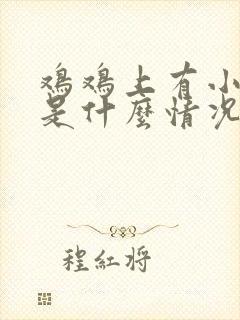 鸡鸡上有小
是什麼情況
程紅将